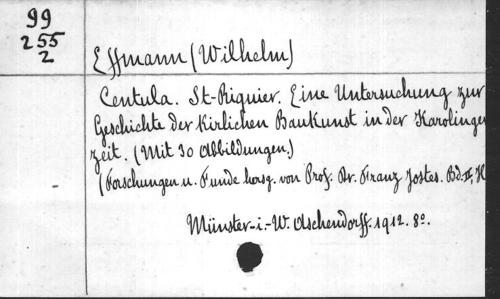 99
255
2
Effmann (Wilhelm)
Centula. St-Riquier. Eine Untersuchung zur
Geschichte der Kirlichen Baukunst in der Karolinger
zeit. (Mit 30 Abbildungen.)
(Forschungen u. Funde hersg. von Prof. Dr. Franz Jostes. Bd. II, H
Münster-i.-W. Aschendorff. 1912. 8°.